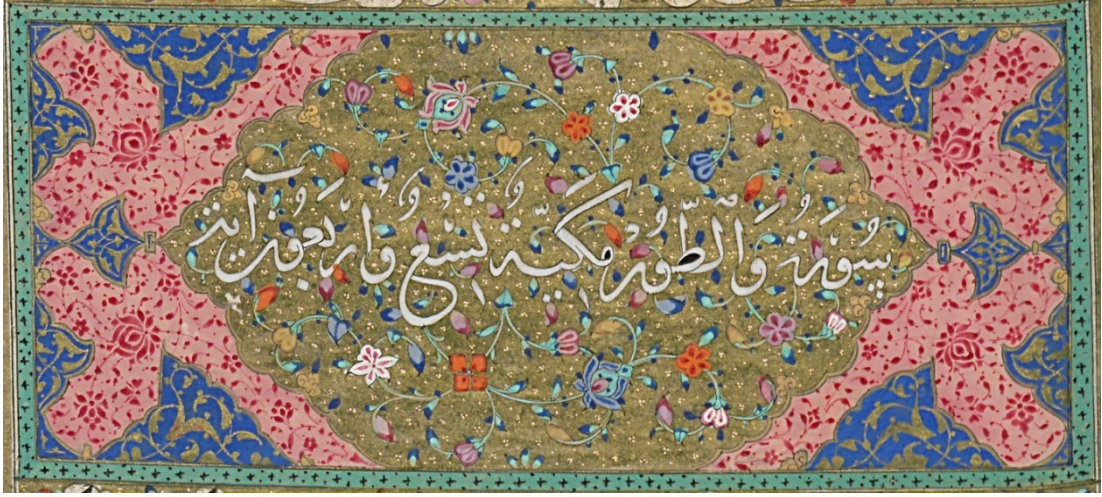 سُورَةُ وَالطُّورُ مَكِّيَّةٌ تِسْعٌ وَأَرْبَعُونَ آيَة